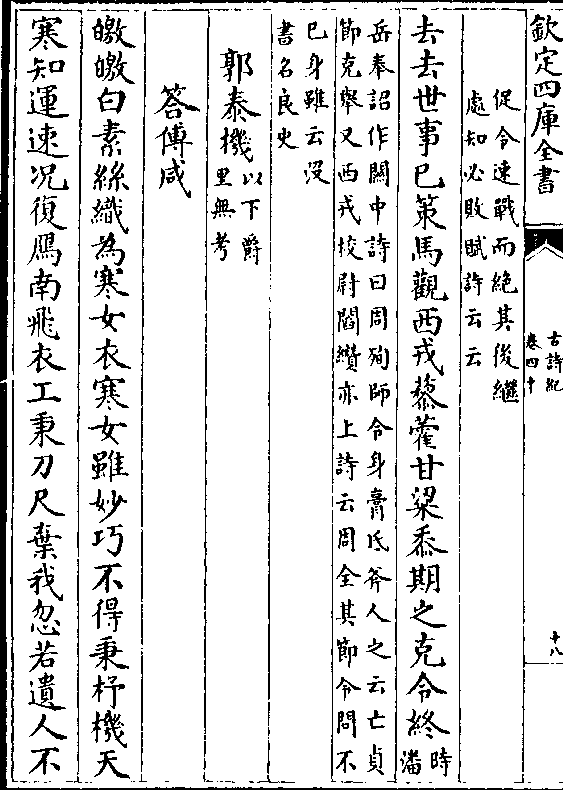 欽定四庫全書
古詩紀
卷四十
十八
促令速戰而絕其後繼
處知必敗賦詩云云
去去世事已策馬觀西戎藜藿甘粱黍期之克令終
時
潘
岳奉詔作關中詩曰周殉師令身膏氐斧人之云亡貞
節克舉又西戎校尉閻纘亦上詩云周全其節令問不
已身雖云沒
書名良史
郭泰機
以下爵
里無考
答傅咸
皦皦白素絲織為寒女衣寒女雖妙巧不得秉杼機天
寒知運速况復鴈南飛衣工秉刀尺棄我忽若遺人不